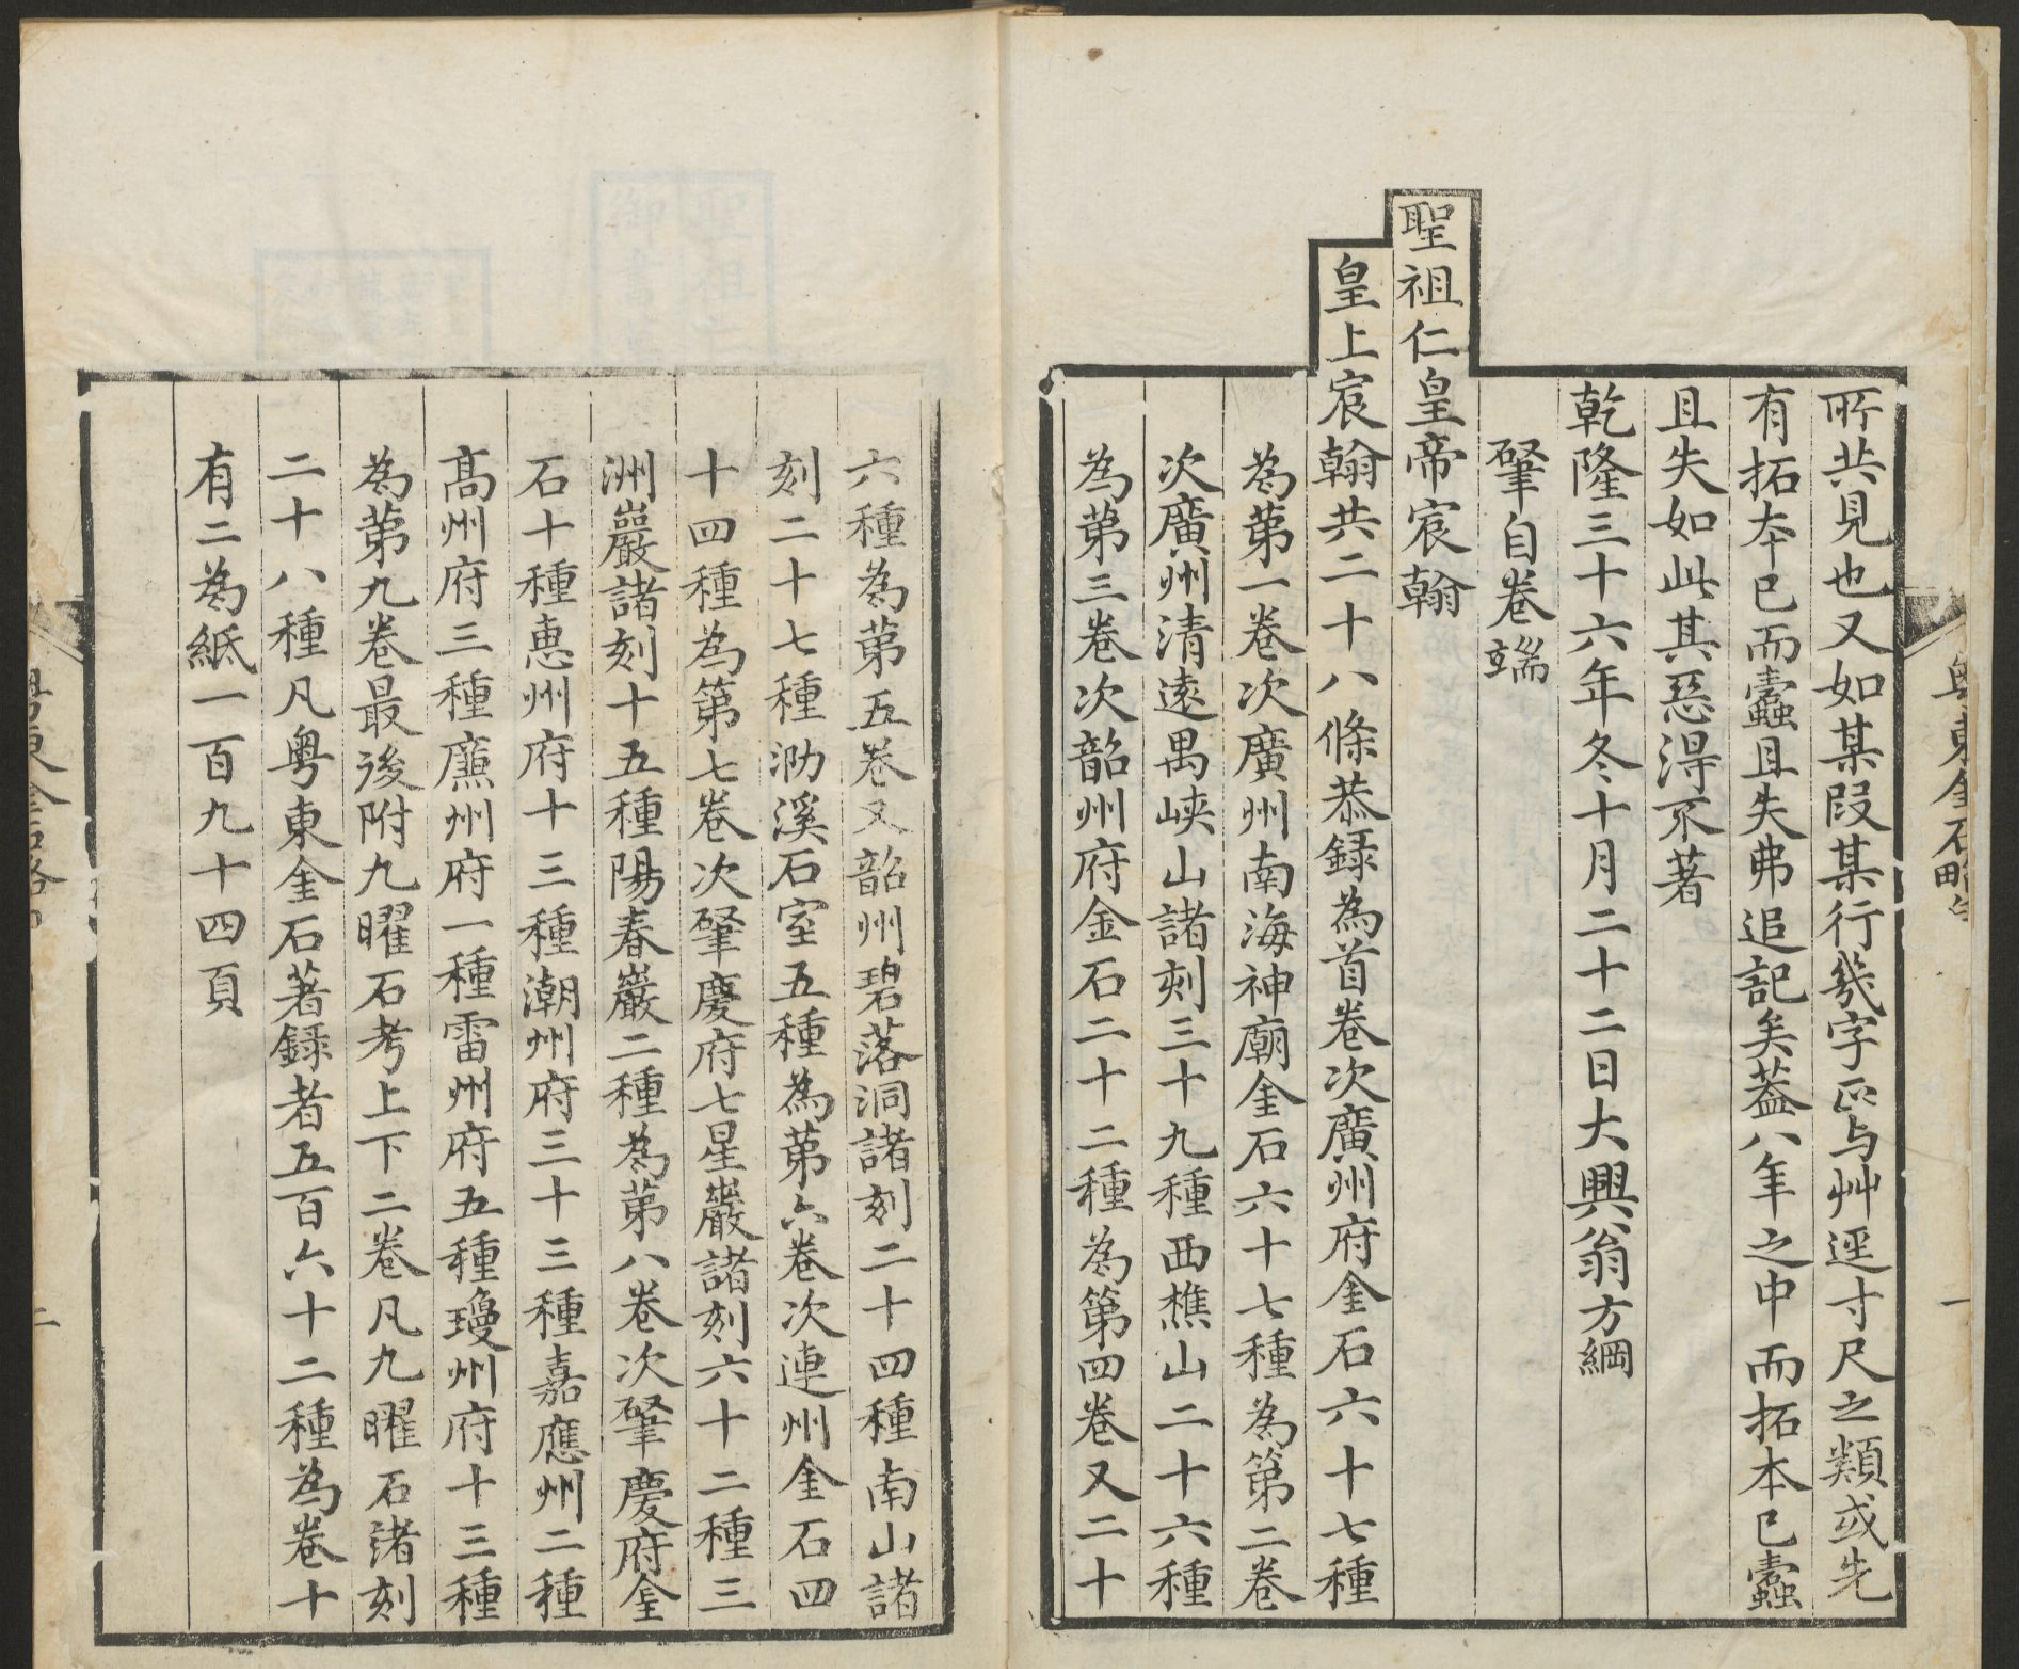 所共見也又如某叚某行幾字正与艸逕寸尺之類或先
有拓本已而蠧且失弗追記矣葢八年之中而拓本已蠧
且失如此其惡得不著
乾隆三十六年冬十月二十二日大興翁方綱
肇自卷端
聖祖仁皇帝宸翰
皇上宸翰共二十八條恭録為首卷次廣州府金石六十七種
為第一卷次廣州南海神廟金石六十七種為第二卷
次廣州清遠禺峽山諸刻三十九種西樵山二十六種
為第三卷次韶州府金石二十二種為第四卷又二十
粤東金石略
一
六種為第五卷又韶州碧落洞諸刻二十四種南山諸
刻二十七種泐溪石室五種為第六卷次連州金石四
十四種為第七卷次肇慶府七星巖諸刻六十二種三
洲巖諸刻十五種陽春巖二種為第八卷次肇慶府金
石十種惠州府十三種潮州府三十三種嘉應州二種
髙州府三種廉州府一種雷州府五種瓊州府十三種
為第九卷最後附九曜石考上下二卷凡九曜石諸刻
二十八種凡粤東金石著録者五百六十二種為卷十
有二為紙一百九十四頁
粤東金石略
二